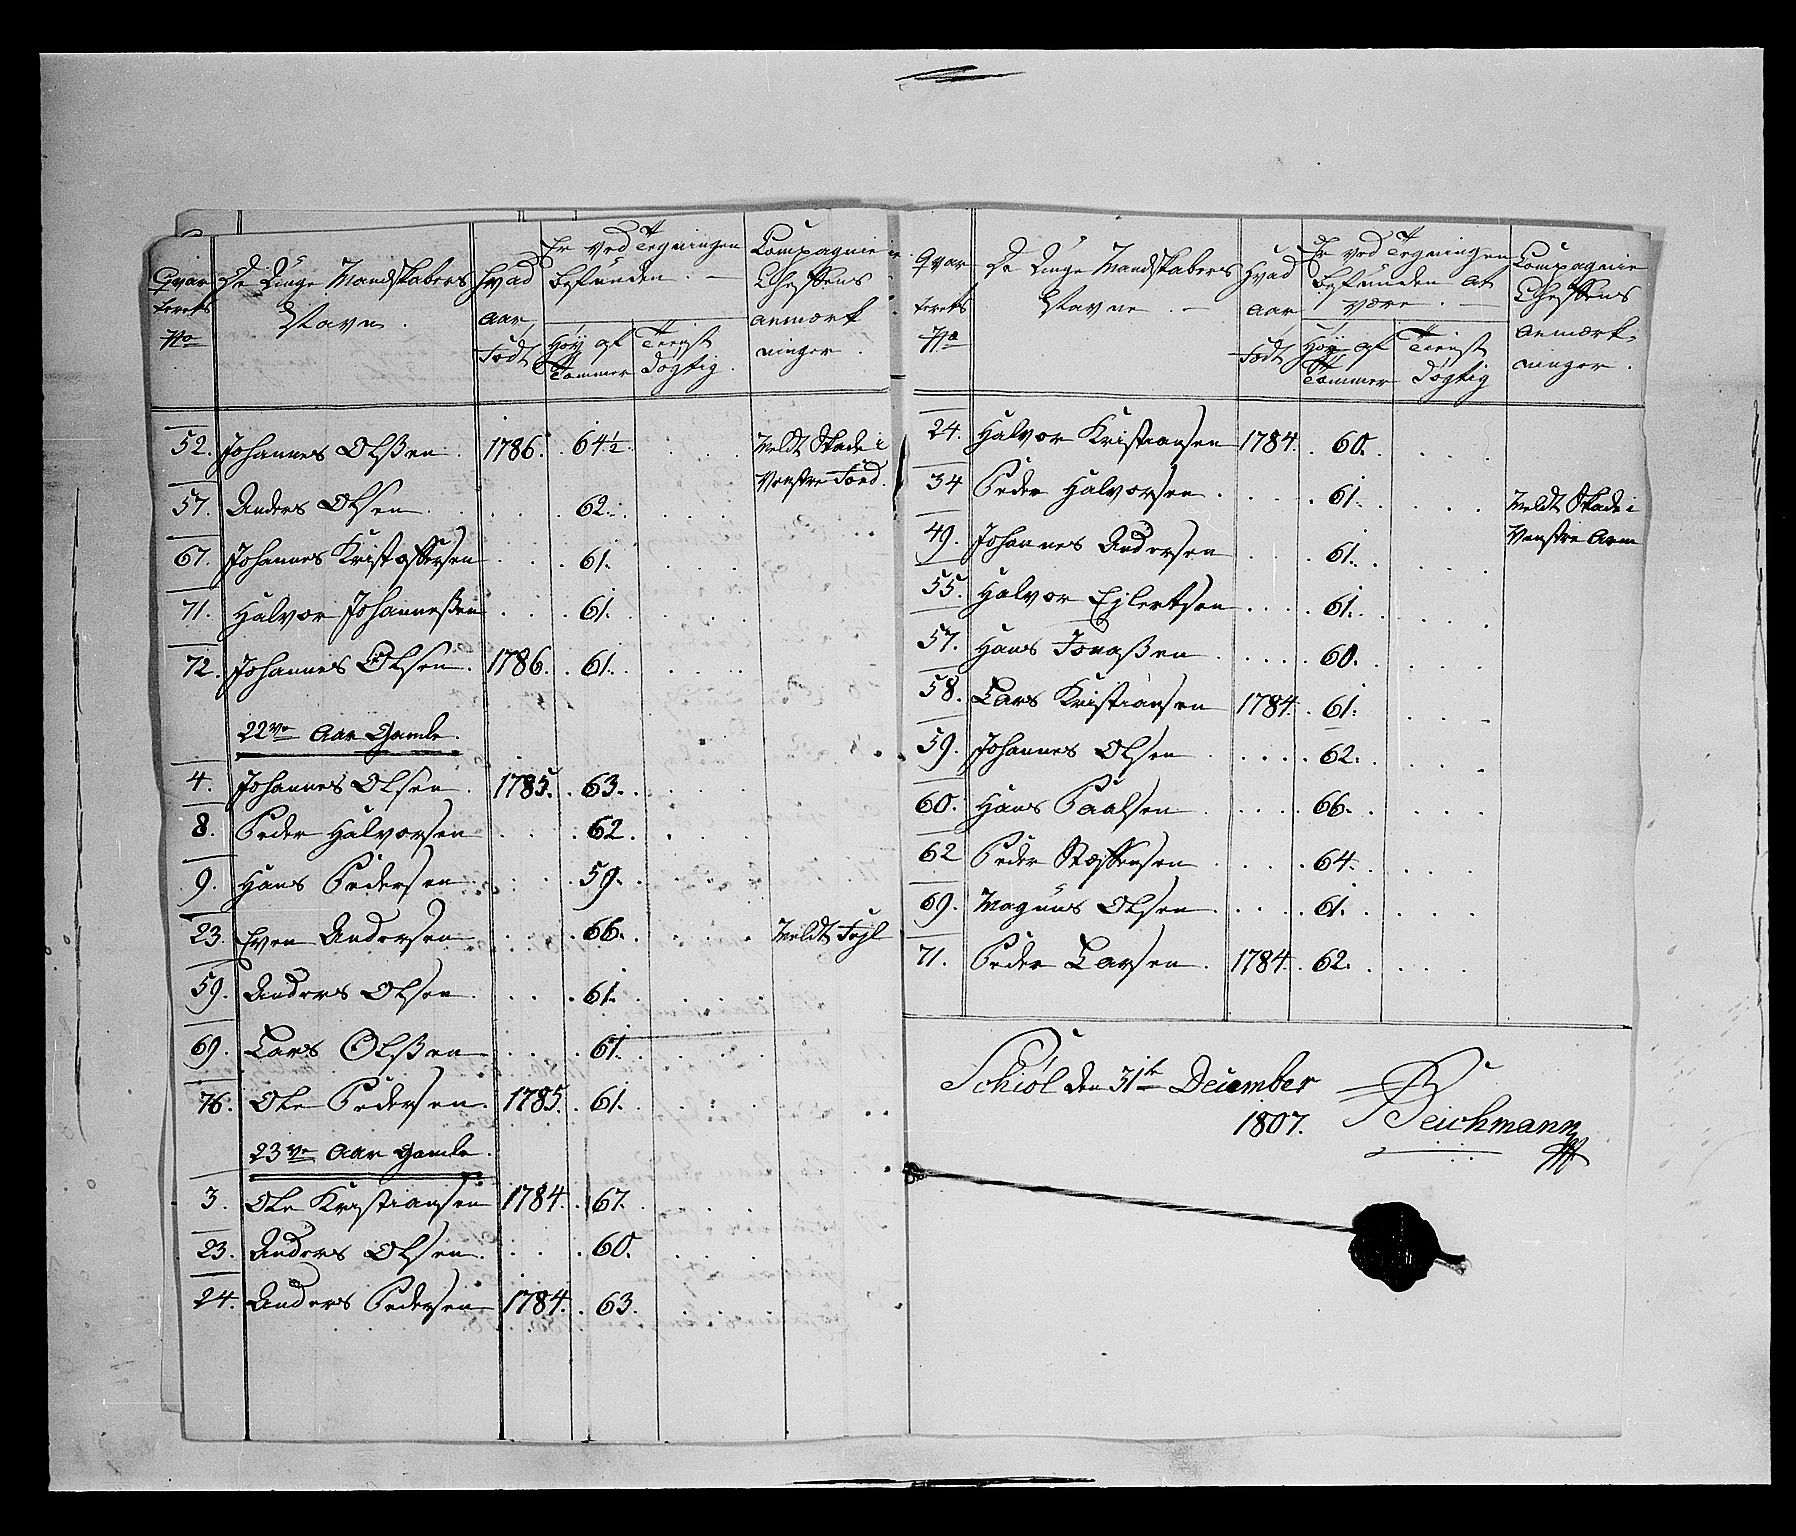 Qvar
terets
No
De Unge Mandskabers
Navn.
Hvad
Aar
Født
Er ved Tegningen
befunden. —
Høy af
Tommer
Tienst
døgtig.
Compagnie
Cheffens
anmærk
ninger.
52. Johannes Olßen. 1786. 64½ Meldt Skade i
Venstre Foed.
57. Anders Olsen. 62.
67. Johannes Kristoffersen 61.
71. Halvor Johanneßen 61.
72. Johannes Olsen. 1786. 61.
22ve Aar Gamle.
4. Johannes Olsen. 1785. 63.
8. Peder Halvorsen 62.
9. Hans Pedersen. 59.
23. Even Andersen 66. Meldt Fejl
59. Anders Olsen. 61.
69. Lars Olßen 61.
76. Ole Pedersen. 1785. 61.
23ve Aar Gamle.
3. Ole Kristiansen 1784. 67.
23. Anders Olsen. 60.
24. Anders Pedersen 1784. 63.
Qvar
terets
No
De Unge Mandskabers
Navne. —
Hvad
Aar
Født
Er ved Tegningen
befunden at
være. —
Høy af
Tommer
Tienst
døgtig
Compagnie
Cheffens
Anmærk-
ninger.
24. Halvor Kristiansen 1784. 60.
34 Peder Halvorsen. 61. Meldt Skade i
Venstre Arm
49. Johannes Andersen 61.
55. Halvor Ejlertsen 61.
57. Hans Jonaßen. 60.
58. Lars Kristiansen 1784. 61.
59. Johannes Olsen. 62.
60. Hans Paalsen. 66.
62 Peder Steffensen. 64.
69. Magnus Olsen. 61.
71. Peder Larsen. 1784. 62.
Schiøl den 31te December
1807. Beichmann